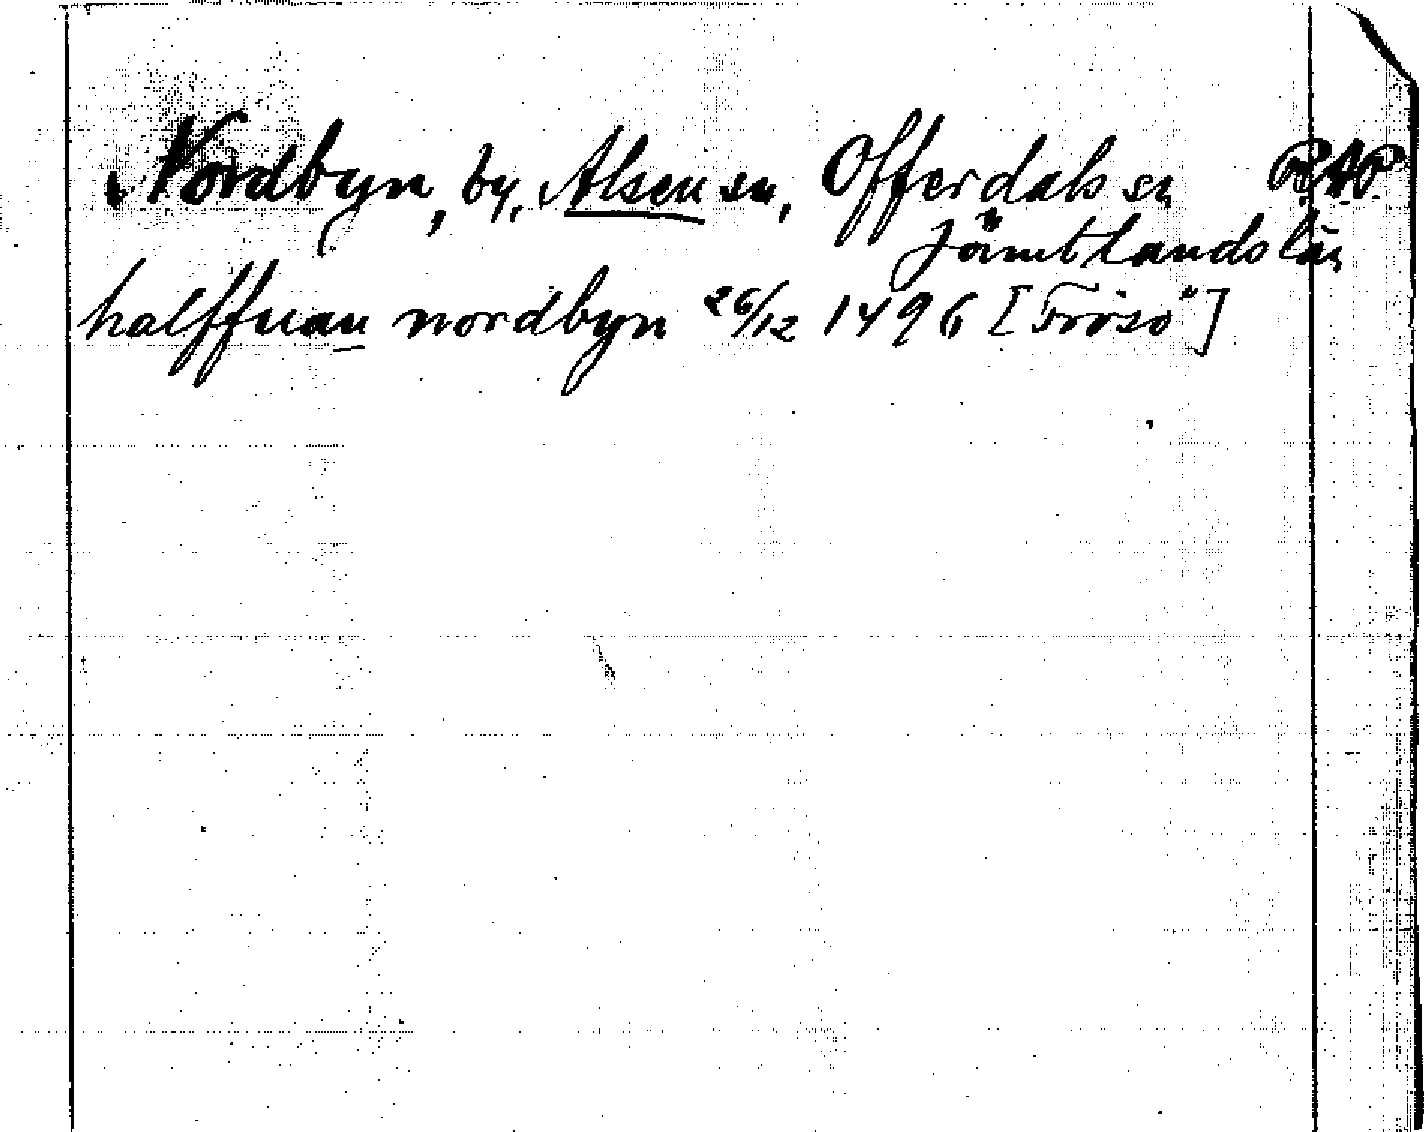 Nordbyn, by, Alsen sn, Offerdals sn RAP
Jämtlands län
halffuan nordbyn 26/12 1496 [Frösö]